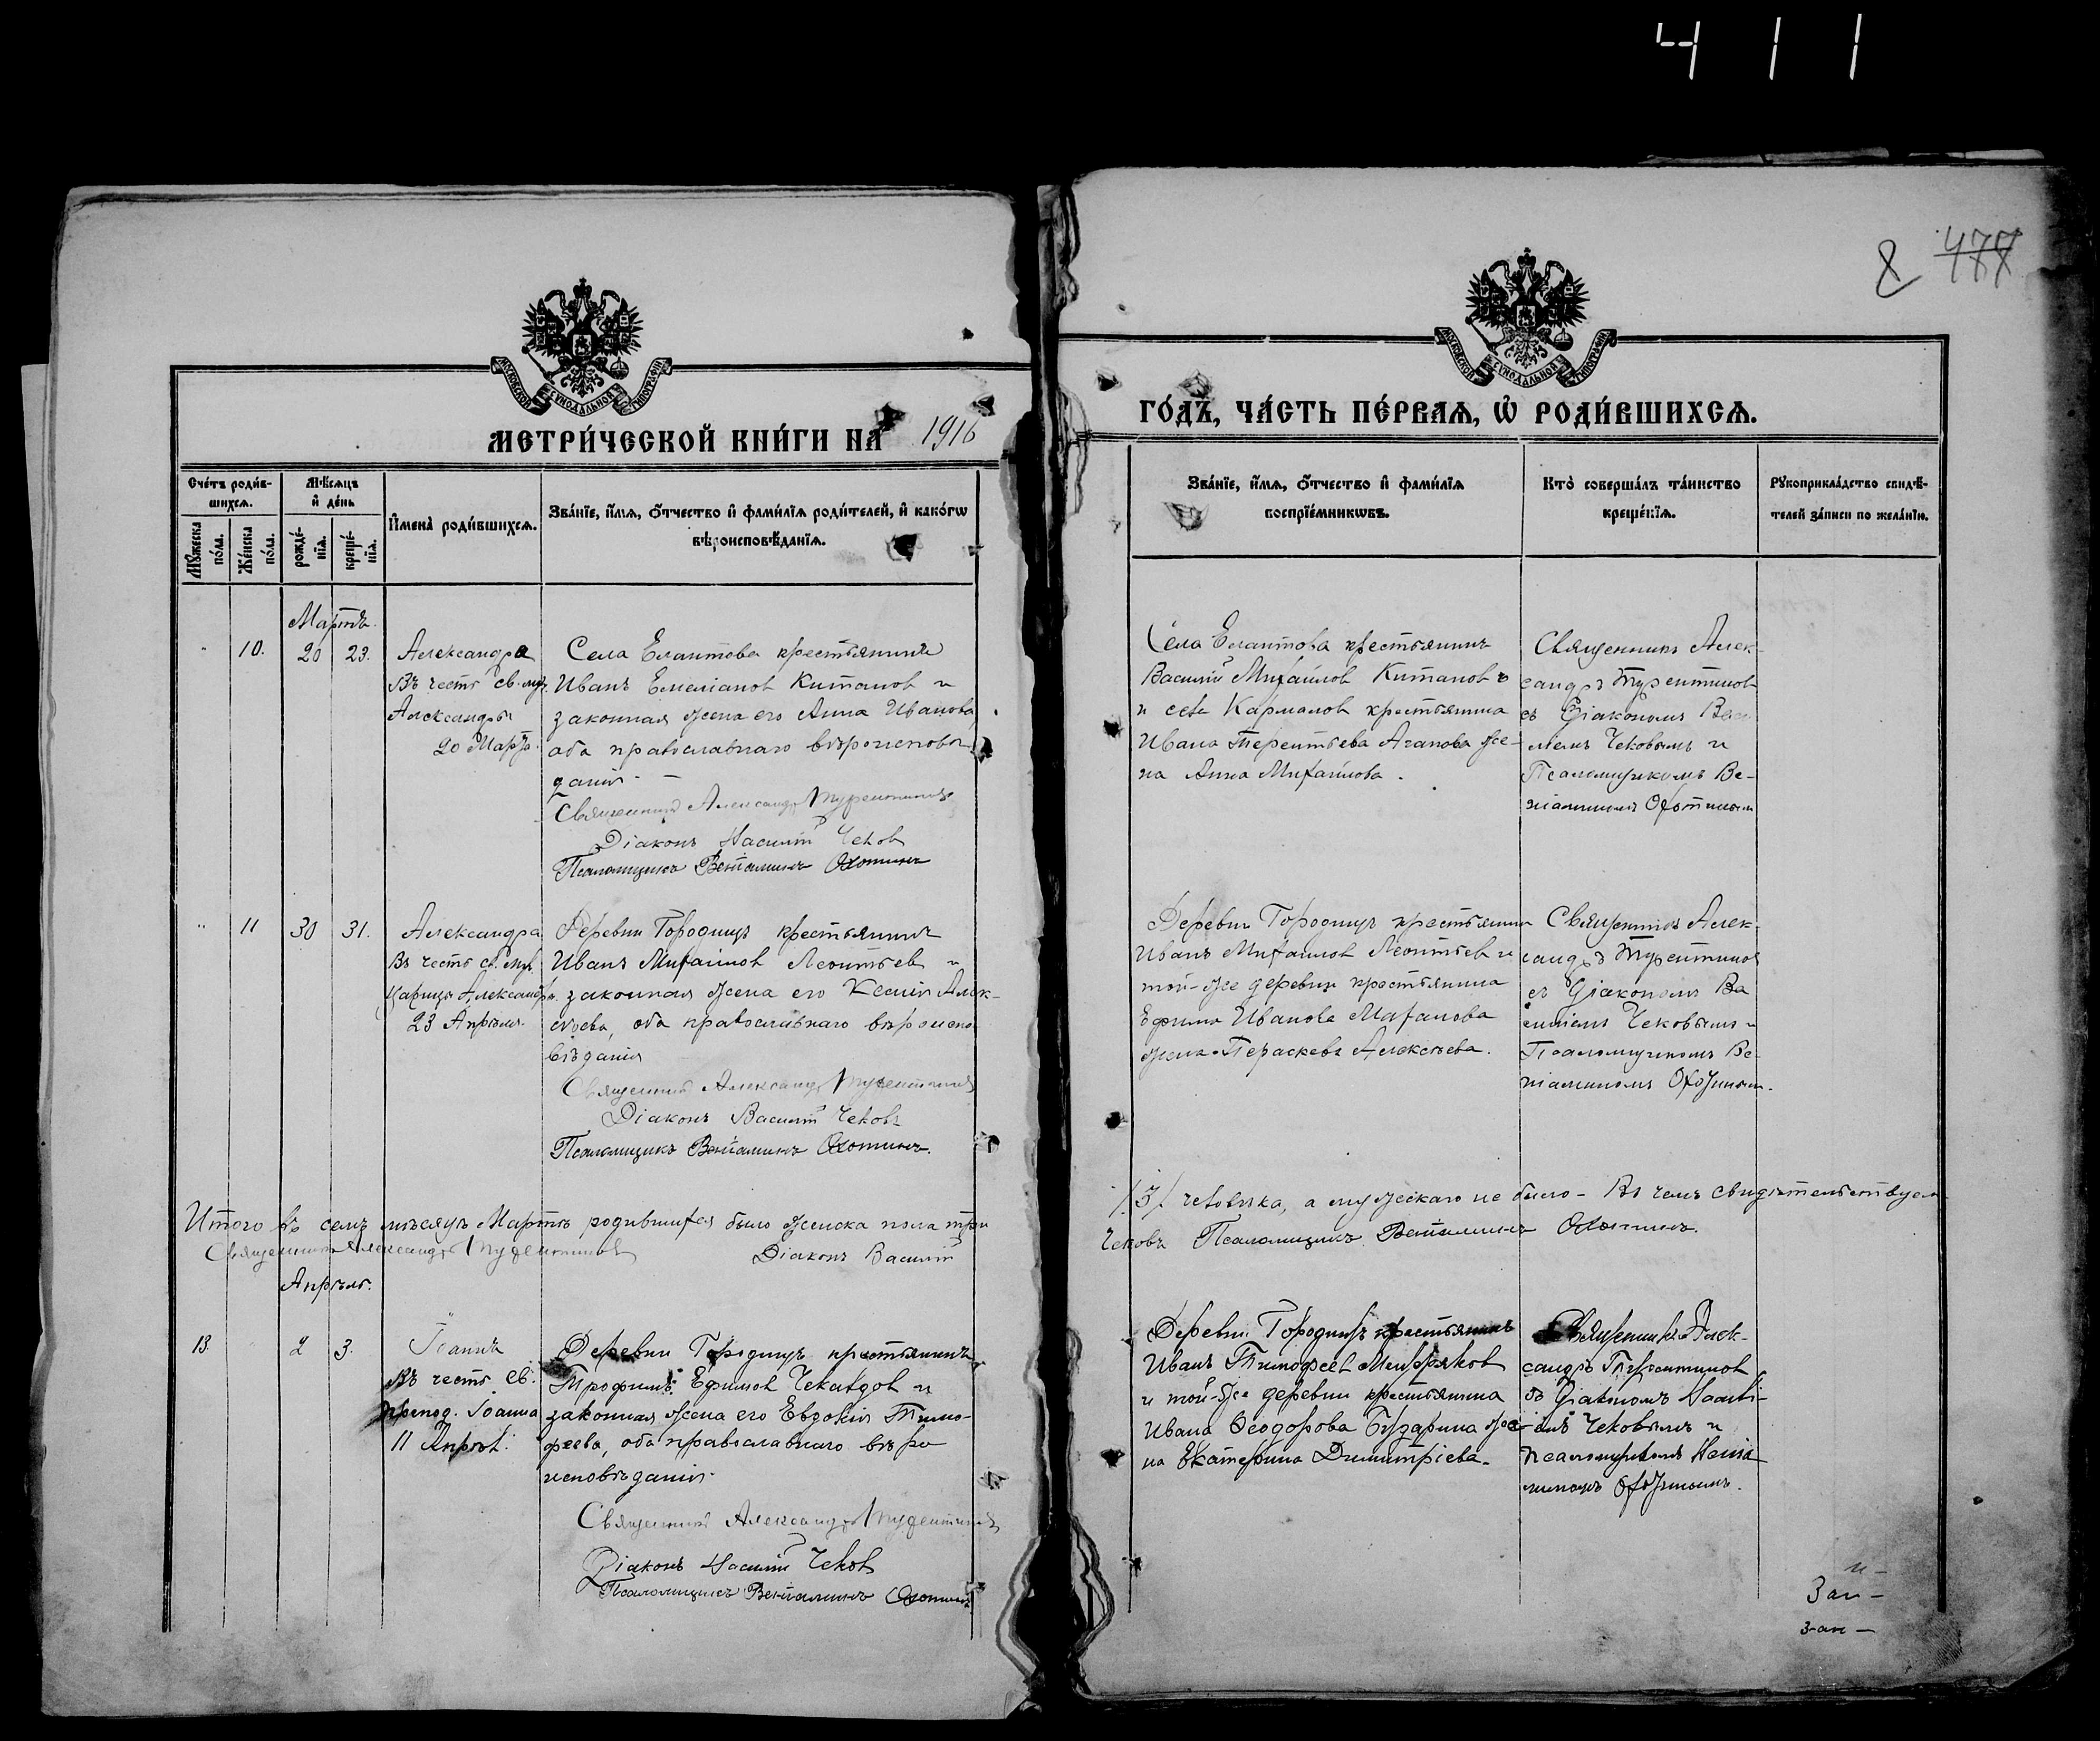 411
8 477
МОСКОВСКОЙ СѴНОДАЛЬНОЙ ТИПОГРАФІИ
МОСКОВСКОЙ СѴНОДАЛЬНОЙ ТИПОГРАФІИ
МЕТРИ́ЧЕСКОЙ КНИ́ГИ НА 1916
ГО́ДЪ, ЧА́СТЬ ПЕ́РВАѦ, Ѡ҆ РОДИ́ВШИХСѦ.
Сче́тъ роди́в-
шихсѧ.
Мѣ́сѧцъ
и҆ де́нь
Мꙋ́жеска
по́ла.
Же́нска
по́ла.
рожде́-
нїѧ.
креще́-
нїѧ.
И҆мена̀ роди́вшихсѧ.
Зва́нїе, и҆́мѧ, ѻ҆́тчество и҆ фами́лїѧ роди́телей, и҆ како́гѡ
вѣроисповѣ́данїѧ.
Зва́нїе, и҆́мѧ, ѻ҆́тчество и҆ фами́лїѧ
воспрїе́мникѡвъ.
Кто̀ соверша́лъ та́инство
креще́нїѧ.
Рꙋкоприкла́дство свидѣ́-
телей за́писи по жела́нїю.
Мартъ.
" 10. 20 23.
Александра
Въ честь св. мц.
Александры
20 Марта.
Села Елаитова крестьянинъ
Иванъ Емеліанов Китанов и
законная жена его Анна Иванова
оба православнаго вѣроисповѣ-
данія. —
Священникъ Александръ Турентинов
Діаконъ Василій Чеков
Псаломщикъ Веніаминъ Охотинъ
Села Елаитова крестьянинъ
Василій Михаилов Китановъ
и села Кармалов крестьянина
Ивана Терентьева Агапова же-
на Анна Михаилова.
Священникъ Алек-
сандръ Турентинов
съ Діакономъ Васи-
ліемъ Чековымъ и
Псаломщикомъ Ве-
ніаминомъ Охотиным
" 11 30 31.
Александра
Въ честь св. муч.
Царицы Александры.
23 Апрѣля.
Деревни Городищъ крестьянинъ
Иванъ Михаилов Леонтьев и
законная жена его Ксенія Алек-
сѣева, оба православнаго вѣроиспо-
вѣданія
Священникъ Александръ Турентинов
Діаконъ Василій Чековъ
Псаломщикъ Веніаминъ Охотинъ.
Деревни Городищъ крестьянин
Иванъ Михаилов Леонтьев и
той-же деревни крестьянина
Ефима Иванова
жена Пераскева Алексѣева.
Священник Алек-
сандръ Турентинов
съ Діакономъ Ва
силіемъ Чековымъ и
Псаломщикомъ Ве-
ніаминомъ Охотиным.
Итого въ семъ мѣсяцѣ Мартѣ родившихся было женска пола три
/3/ человѣка, а мужскаго не было – Въ чемъ свидѣтельствуем
Священникъ Александръ Турентинов Діаконъ Василій
Чековъ Псаломщикъ Веніаминъ Охотинъ.
Апрѣль.
13. " 2 3.
Іоаннъ
Въ честь св.
препод. Іоанна
11 Апрѣл.
Деревни Городищъ крестьянинъ
Трофимъ Ефимов и
законная жена его Евдокія Тимо-
феева, оба православнаго вѣро
исповѣданія.
Священникъ Александръ Турентинов
Діаконъ Василій Чеков
Псаломщикъ Веніаминъ Охотинъ
Деревни Городищъ крестьянинъ
Иванъ Тимофеев
и той-же деревни крестьянина
Ивана Ѳеодорова же-
на Екатерина Димитріева.
Священникъ Алек-
сандръ Турентинов
съ Діакономъ Васи-
ліемъ Чековымъ и
псаломщикомъ Веніа
миномъ Охотинымъ.